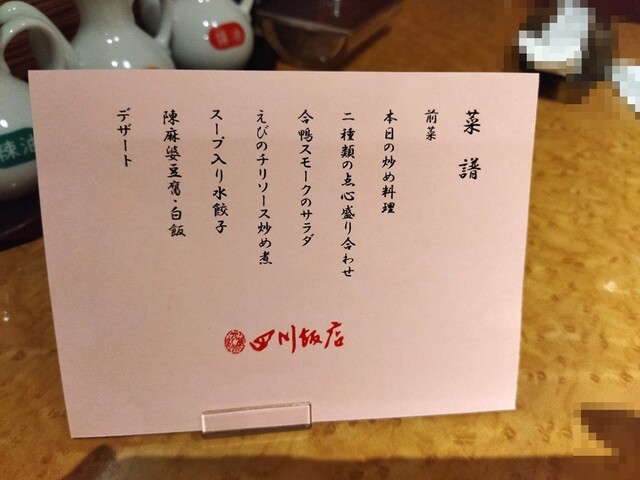 菜譜
前菜
本日の炒め料理
二種類の点心盛り合わせ
合鴨スモークのサラダ
えびのチリソース炒め煮
スープ入り水餃子
陳麻婆豆腐・白飯
デザート
四川飯店
辣油